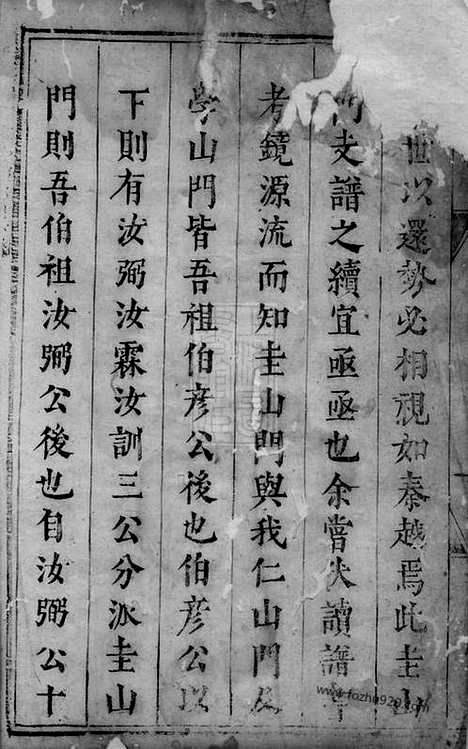 世以還勢必相視如秦越焉此圭山
門支譜之續宜亟亟也余嘗伏讀譜
考鏡源流而知圭山門與我仁山門及
學山門皆吾祖伯彦公後也伯彦公以
下則有汝弼汝霖汝訓三公分派圭山
門則吾伯祖汝弼公後也自汝弼公十